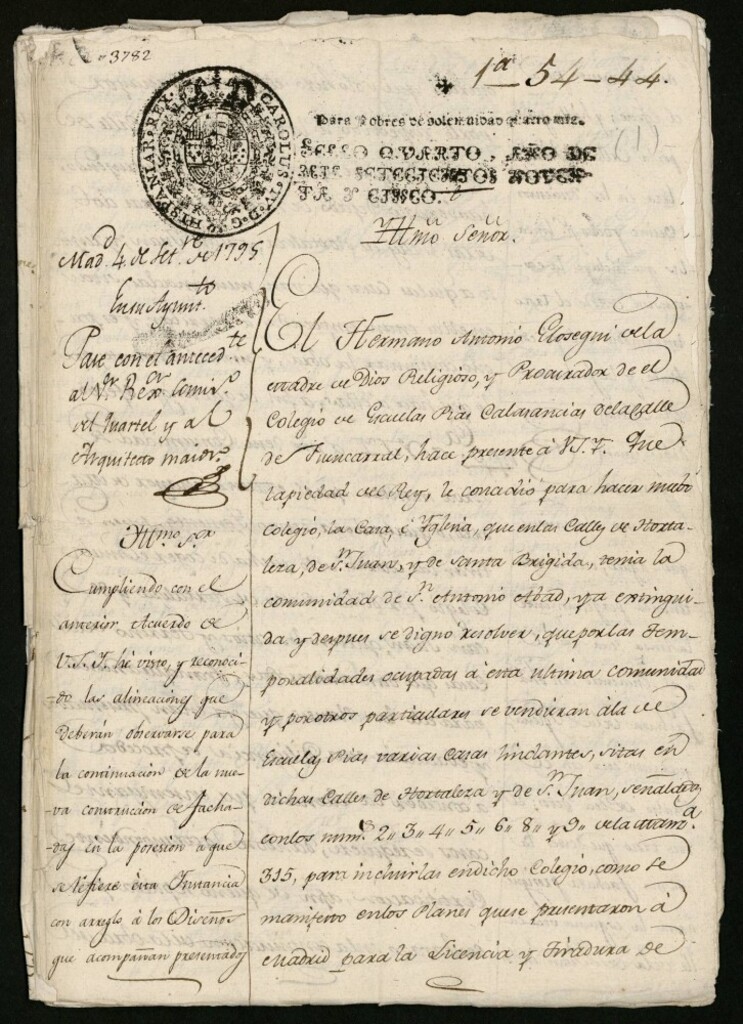 3782
1ª 54-44.
(1)
HISPANIAR. REX. CAROLUS IV. D. G.
Para Pobres de solemnidad quatro mrs.
SELLO QVARTO, AÑO DE
MIL SETECIENTOS NOVEN-
TA Y CINCO.
Mad.d 4 de Set.re de 1795
En su Ayunt.to
Pase con el anteced.te
al S.or Rex.or Comis.o
del Quartel y al
Arquitecto maior.
Yll.mo S.or
Cumpliendo con el
anterior Acuerdo de
V.S.Y. hé visto, y reconoci-
-do las alineaciones que
deberán observarse para
la continuacion de la nue-
va construccion de facha-
-das en la posesion á que
se refiere esta Instancia
con arreglo á los Diseños
que acompañan presentados
Yllmo. Señor.
El Hermano Antonio Elosegui de la
Madre de Dios Religioso, y Procurador de el
Colegio de Escuelas Pias Calasancias de la Calle
de Fuencarral, hace presente á V.S.Y. Que
la piedad del Rey, le concedió para hacer nuebo
colegio, la Casa, é Yglesia, que en las Calles de Horta-
leza, de S.n Juan, y de Santa Brigida, tenia la
comunidad de S.n Antonio Abad, ya extingui-
da y despues se dignó resolver, que por las Tem-
poralidades ocupadas á esta ultima comunidad
y por otros particulares se vendieran á la de
Escuelas Pias varias Casas lindantes, sitas en
dichas Calles de Hortaleza y de S.n Juan, señaladas
con los num.s 2,, 3,, 4,, 5,, 6,, 8,, y 9,, de la Manz.a
315, para incluirlas en dicho Colegio, como se
manifestó en los Planes que se presentaron á
Madrid para la Licencia y Tiradura de